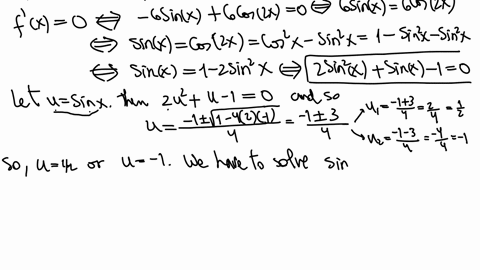 f'(x) = 0 ⇔ -6Sin(x) + 6Cos(2x) = 0 ⇔ 6Sin(x) = 6Cos(2x)
⇔ Sin(x) = Cos(2x) = Cos²x - Sin²x = 1 - Sin²x - Sin²x
⇔ Sin(x) = 1 - 2Sin²x ⇔ 2Sin²(x) + Sin(x) - 1 = 0
Let u = Sinx. then 2u² + u - 1 = 0 and so
u = (-1 ± √(1 - 4(2)(-1)))/4 = (-1 ± 3)/4
u₁ = (-1+3)/4 = 2/4 = 1/2
u₂ = (-1-3)/4 = -4/4 = -1
So, u = 1/2 or u = -1. We have to solve sin